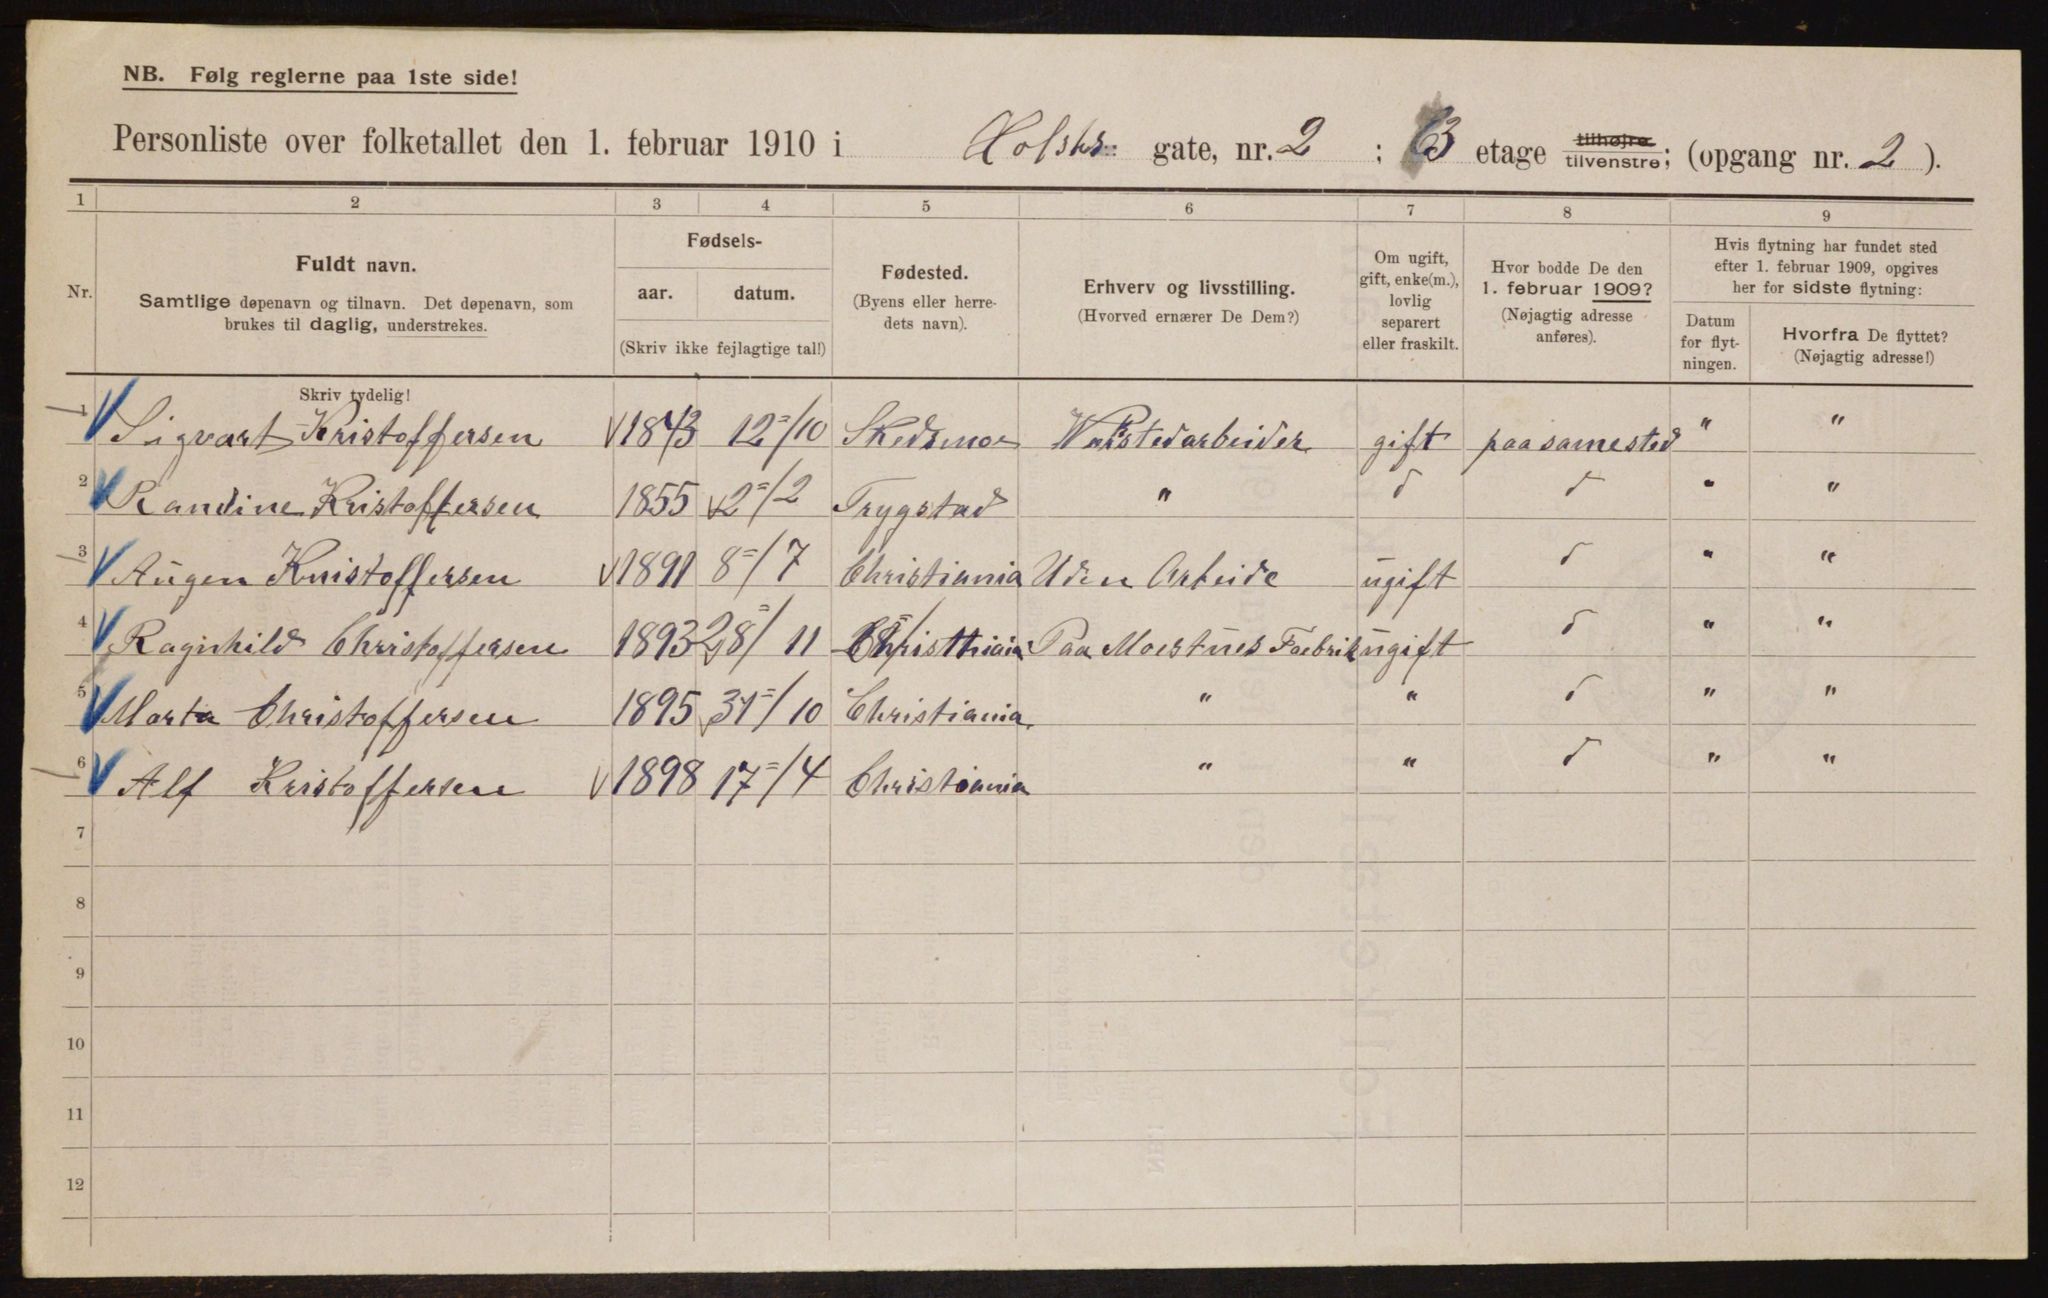 NB. Følg reglerne paa 1ste side!
Personliste over folketallet den 1. februar 1910 i Holsts gate, nr. 2 ; 3 etage tilhøjre tilvenstre; (opgang nr. 2 ).
1 2 3 4 5 6 7 8 9
Nr.
Fuldt navn.
Samtlige døpenavn og tilnavn. Det døpenavn, som
brukes til daglig, understrekes.
Skriv tydelig!
Fødsels-
aar. datum.
(Skriv ikke fejlagtige tal!)
Fødested.
(Byens eller herre-
dets navn).
Erhverv og livsstilling.
(Hvorved ernærer De Dem?)
Om ugift,
gift, enke(m.),
lovlig
separert
eller fraskilt.
Hvor bodde De den
1. februar 1909?
(Nøjagtig adresse
anføres).
Hvis flytning har fundet sted
efter 1. februar 1909, opgives
her for sidste flytning:
Datum
for flyt-
ningen.
Hvorfra De flyttet?
(Nøjagtig adresse!)
1 Sigvart Kristoffersen 1843 12=/10 Skedsmo gift paa samested " "
2 Randine Kristoffersen 1855 2=/2 Trygstad " d d " "
3 Augen Kristoffersen 1891 8=/7 Christiania Uden Arbeide ugift d " "
4 Ragnhild Christoffersen 1893 28=/11 Paa Moestues Fabrik ugift d " "
5 Marta Christoffersen 1895 31=/10 Christiania " " d " "
6 Alf Kristoffersen 1898 17=/4 Christiania " " d " "
7
8
9
10
11
12